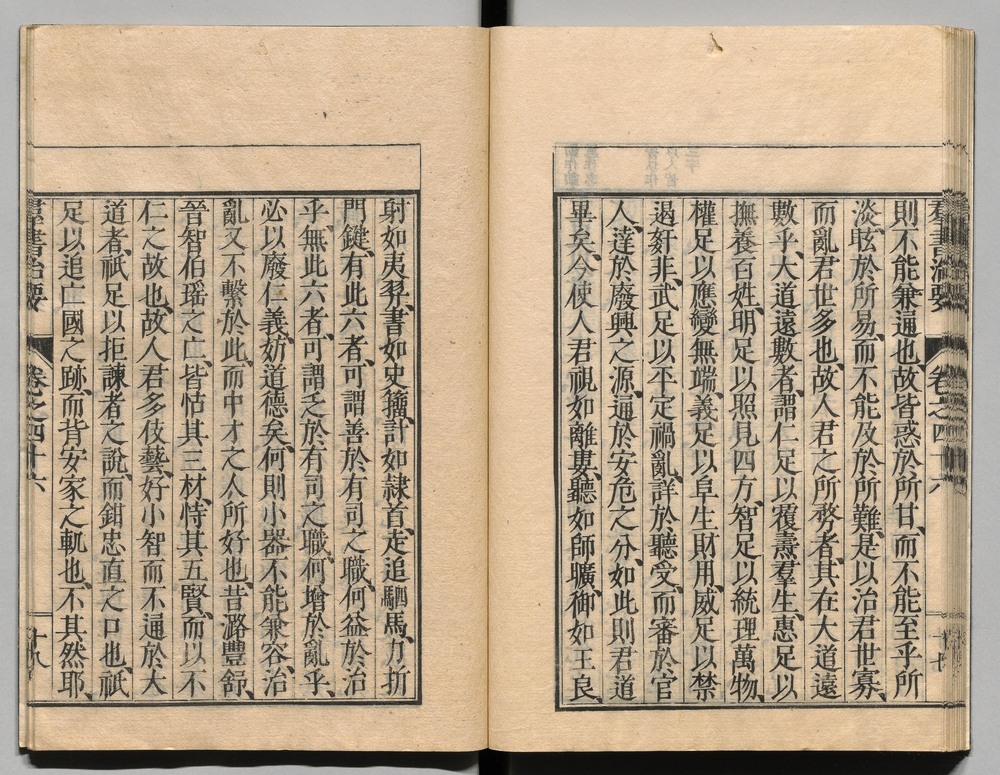 則不能兼通也、故皆惑於所甘、而不能至乎所
淡、眩於所易、而不能及於所難、是以治君世寡、
而亂君世多也、故人君之所務者、其在大道遠
數乎、大道遠數者、謂仁足以覆燾羣生、惠足以
撫養百姓、明足以照見四方、智足以統理萬物、
權足以應變無端、義足以阜生財用、威足以禁
遏姧非、武足以平定禍亂、詳於聽受、而審於官
人、達於廢興之源、通於安危之分、如此則君道
畢矣、今使人君視如離婁、聽如師曠、御如王良、
羣書治要
卷之四十六
十七
射如夷羿、書如史籀、計如隸首、走追駟馬、力折
門鍵、有此六者、可謂善於有司之職、何益於治
乎、無此六者、可謂乏於有司之職、何增於亂乎、
必以廢仁義、妨道德矣、何則小器不能兼容、治
亂又不繫於此、而中才之人所好也、昔潞豐舒、
晉智伯瑶之亡、皆怙其三材、恃其五賢、而以不
仁之故也、故人君多伎藝、好小智而不通於大
道者、祇足以拒諫者之說、而鉗忠直之口也、祇
足以追亡國之跡、而背安家之軌也、不其然耶、
羣書治要
卷之四十六
十八